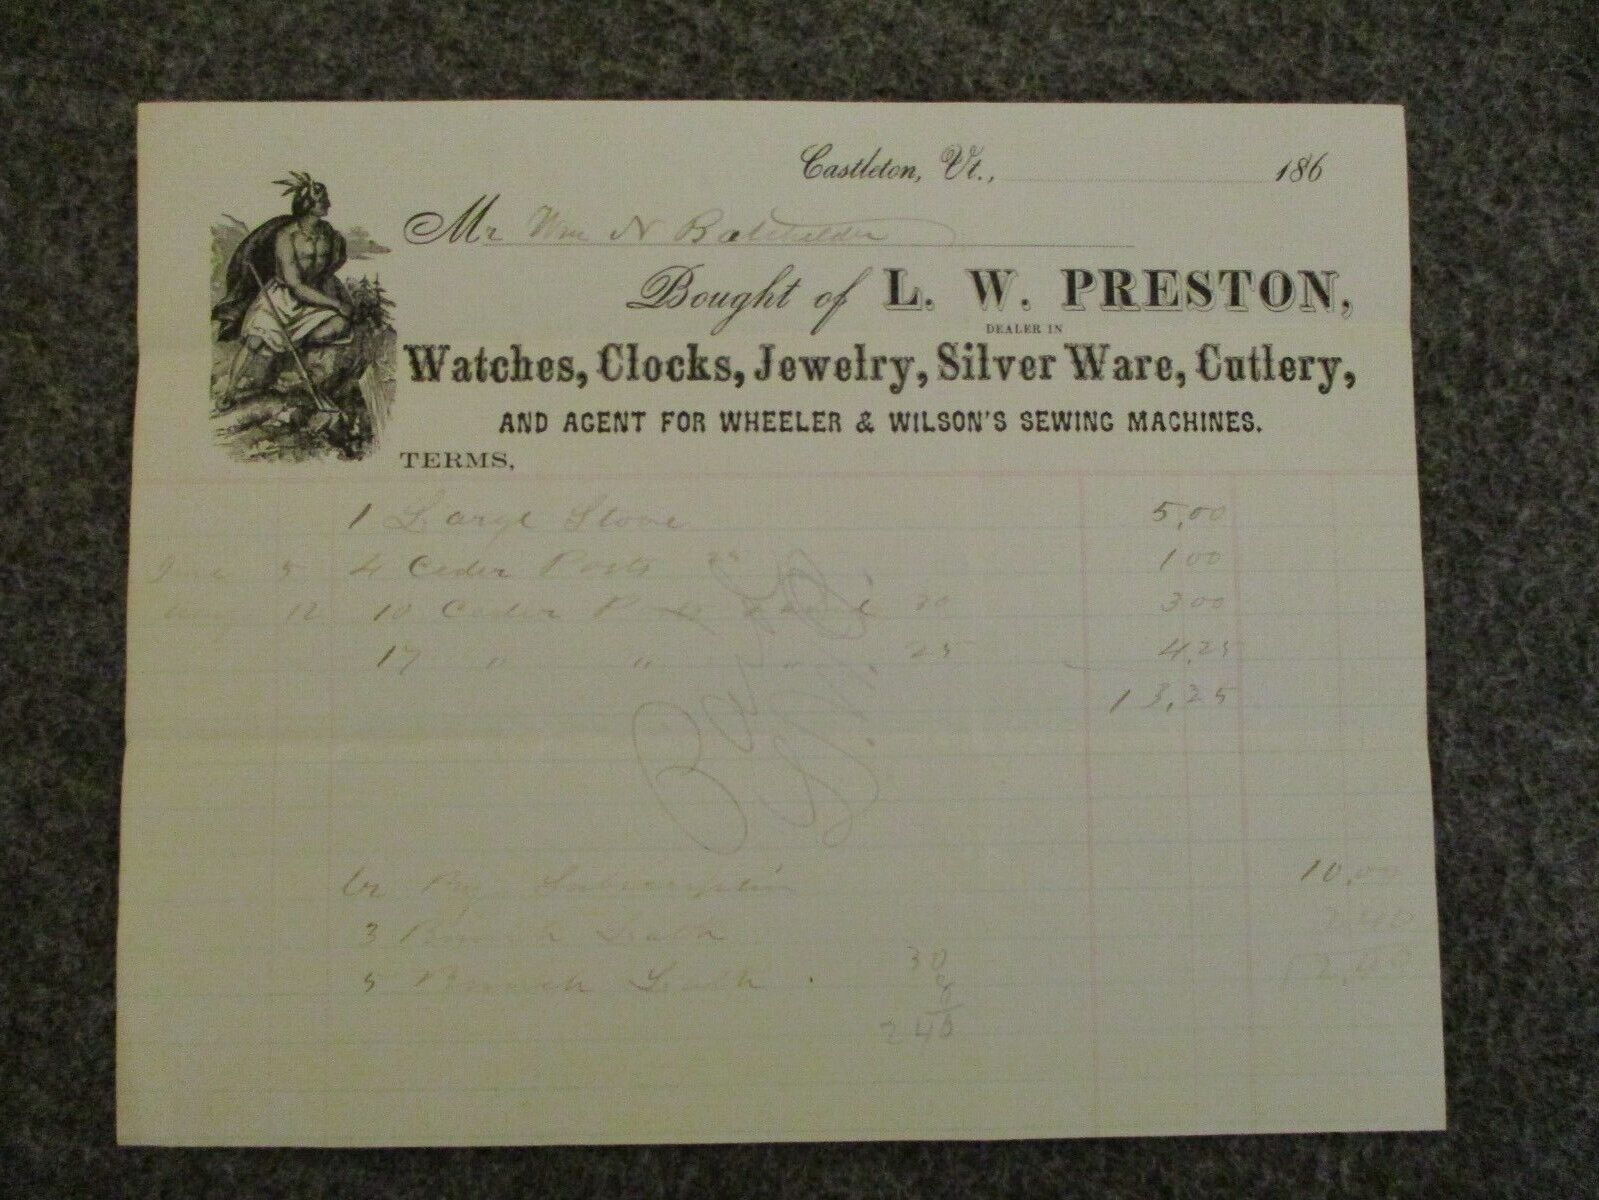 Castleton, Vt., 186
Mr Wm N Batchelder
Bought of L. W. PRESTON,
DEALER IN
Watches, Clocks, Jewelry, Silver Ware, Cutlery,
AND AGENT FOR WHEELER & WILSON'S SEWING MACHINES.
TERMS,
1 Large Stove 5,00
June 5 4 Ceder Posts 25 1 00
12 10 Ceder Posts 30 3 00
17 " " " 25 4,25
13,25
Cr By Subscription 10,00
3 Bunch Lath 2,40
5 Bunch Lath 30
8
240